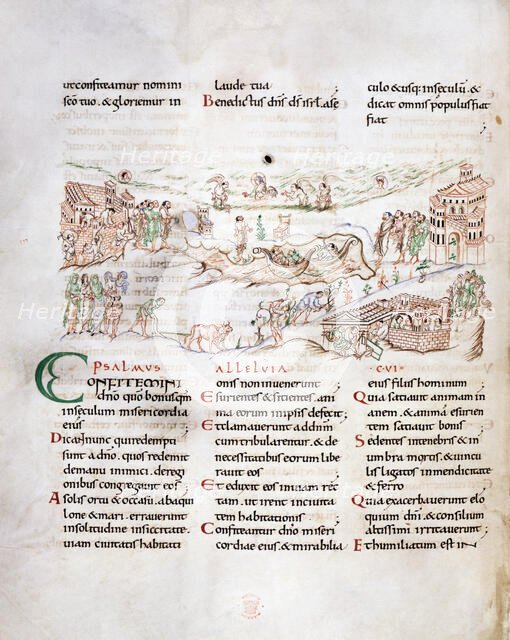 ut confiteamur nomini
sco tuo . & gloriemur in
laude tua
Benedictus dns ds isrl ase
culo & usq: inseculu . &
dicat omnis populus fiat
fiat
PSALMUS ALLELUIA CVI
CONFITEMINI
dno quo bonusqm
insecułum misericordia
eius
Dicat nunc qui redempti
sunt adno . quos redemit
demanu inimici . deregi
onibus congregavit eos
A solis ortu & occasu . abaqui
lone & mari . erraverunt
insolitudine insiccitate .
viam civitatis habitati
onis non invenerunt
Esurientes & sitientes . ani
ma eorum inipsis defecit
Et clamaverunt addnm
cum tribularentur . & de
necessitatibus eorum libe
ravit eos
Et eduxit eos inviam rec
tam . ut irent incivita
tem habitationis
Confiteantur dno miseri
cordiae eius . & mirabilia
eius filiis hominum
Quia satiavit animam in
anem . & animã esurien
tem satiavit bonis
Sedentes intenebris & in
umbra mortis . & vincu
lis ligatos inmendicitate
& ferro
Quia exacerbaverunt elo
quium dni . & consilium
altissimi irritaverunt
Et humiliatum est in
Heritage
Heritage
Heritage
Heritage